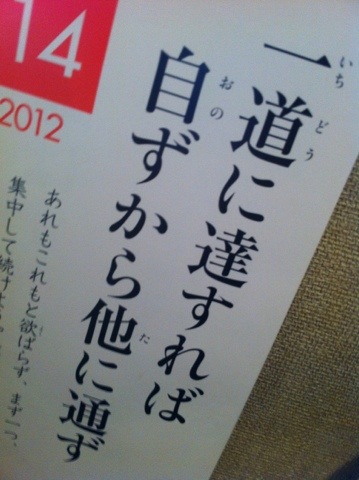 14
2012
一道に達すれば
自ずから他に通ず
いち どう
おの
た
あれもこれもと欲ばらず、まず一つ、
集中して続け